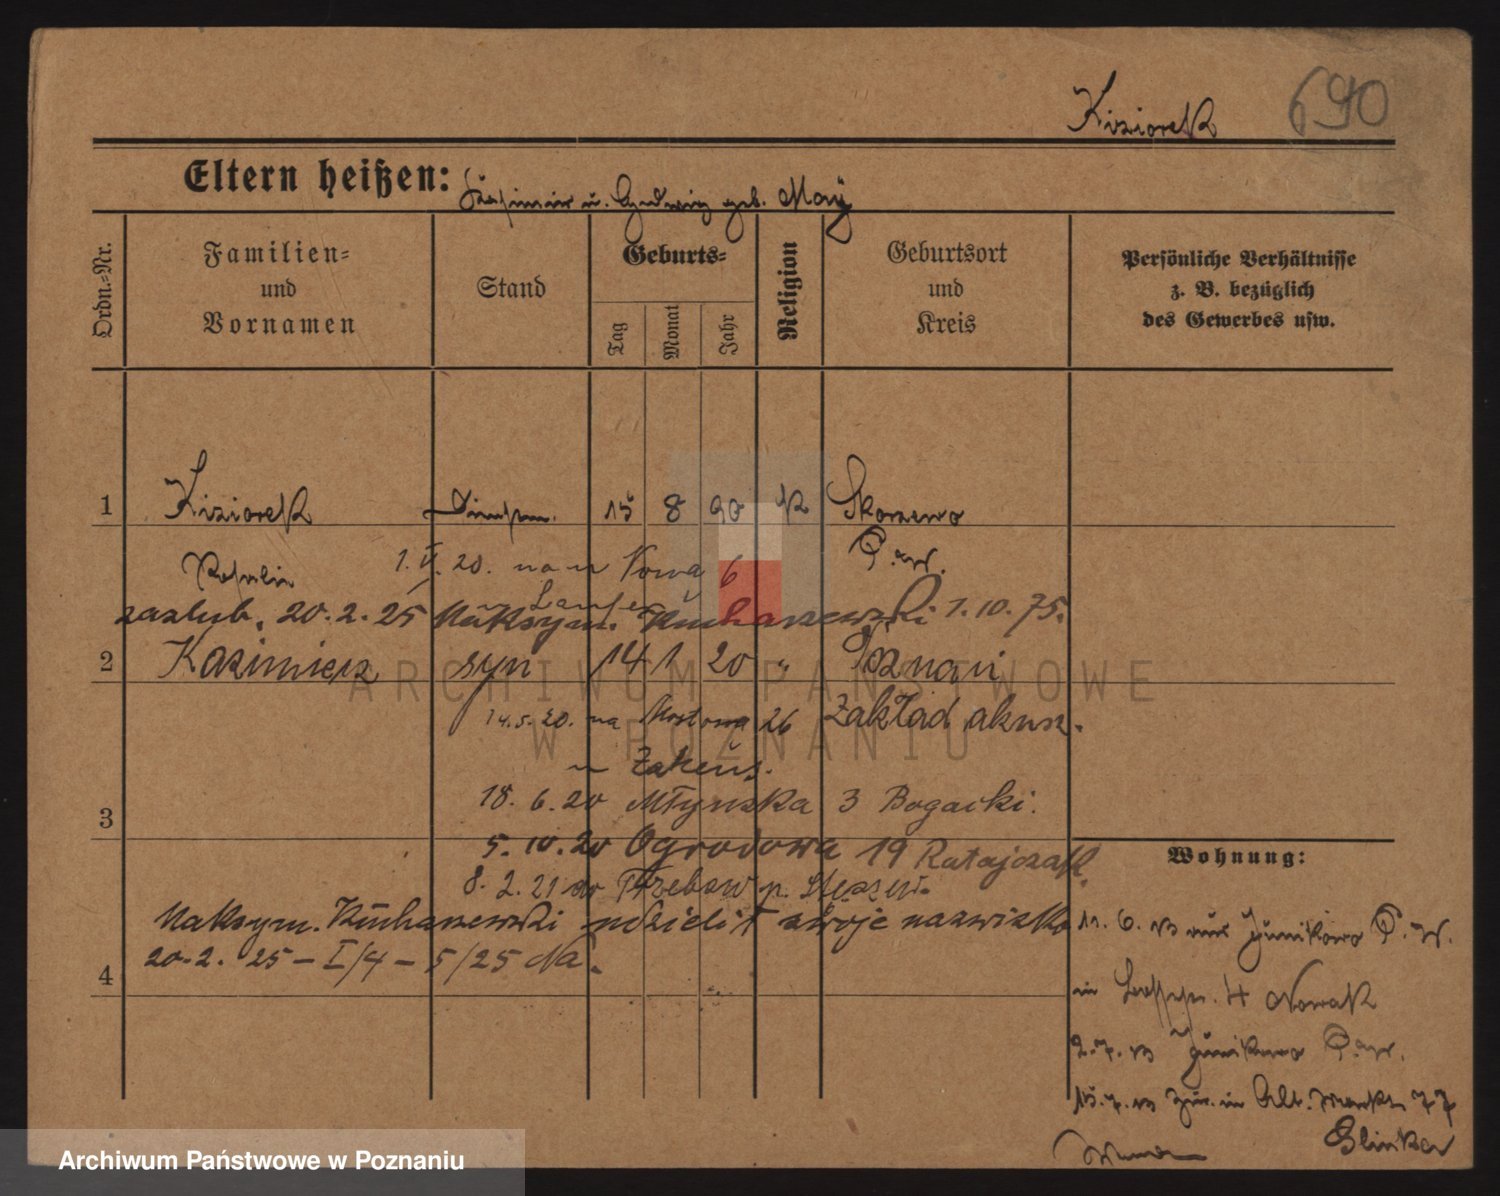 690
Kiziorek
Eltern heißen: Kasimir u. Hedwig geb. May
Ordn.-Nr.
Familien- und Vornamen
Stand
Geburts-
Tag
Monat
Jahr
Religion
Geburtsort und Kreis
Persönliche Verhältnisse z. B. bezüglich des Gewerbes usw.
1 Kiziorek 15 8 90 K Skorzewo
P. W.
1. V. 20. na Nowa 6
zaslub. 20.2.25 Maksym. Kucharzewski 1.10.75.
2 Kazimierz syn 14 1 20 " Poznań
14.5.20. na Mostowa 26 Zakład akusz.
18.6.20 Młyńska 3 Bogacki.
3
5.10.20 Ogrodowa 19 Ratajczak
Wohnung:
8.2.21 do Trzebaw p. Stęszew.
Maksym. Kucharzewski udzielił swoje nazwisko
20.2. 25 – I/4 – 5/25 Na.
4
11. 6. 13 Junikowo P. W.
in 4 Nowak
2.7.13 Junikowo P. W.
15.7.13 in Alt. Markt 77
Glinka
ARCHIWUM PAŃSTWOWE
W POZNANIU
Archiwum Państwowe w Poznaniu